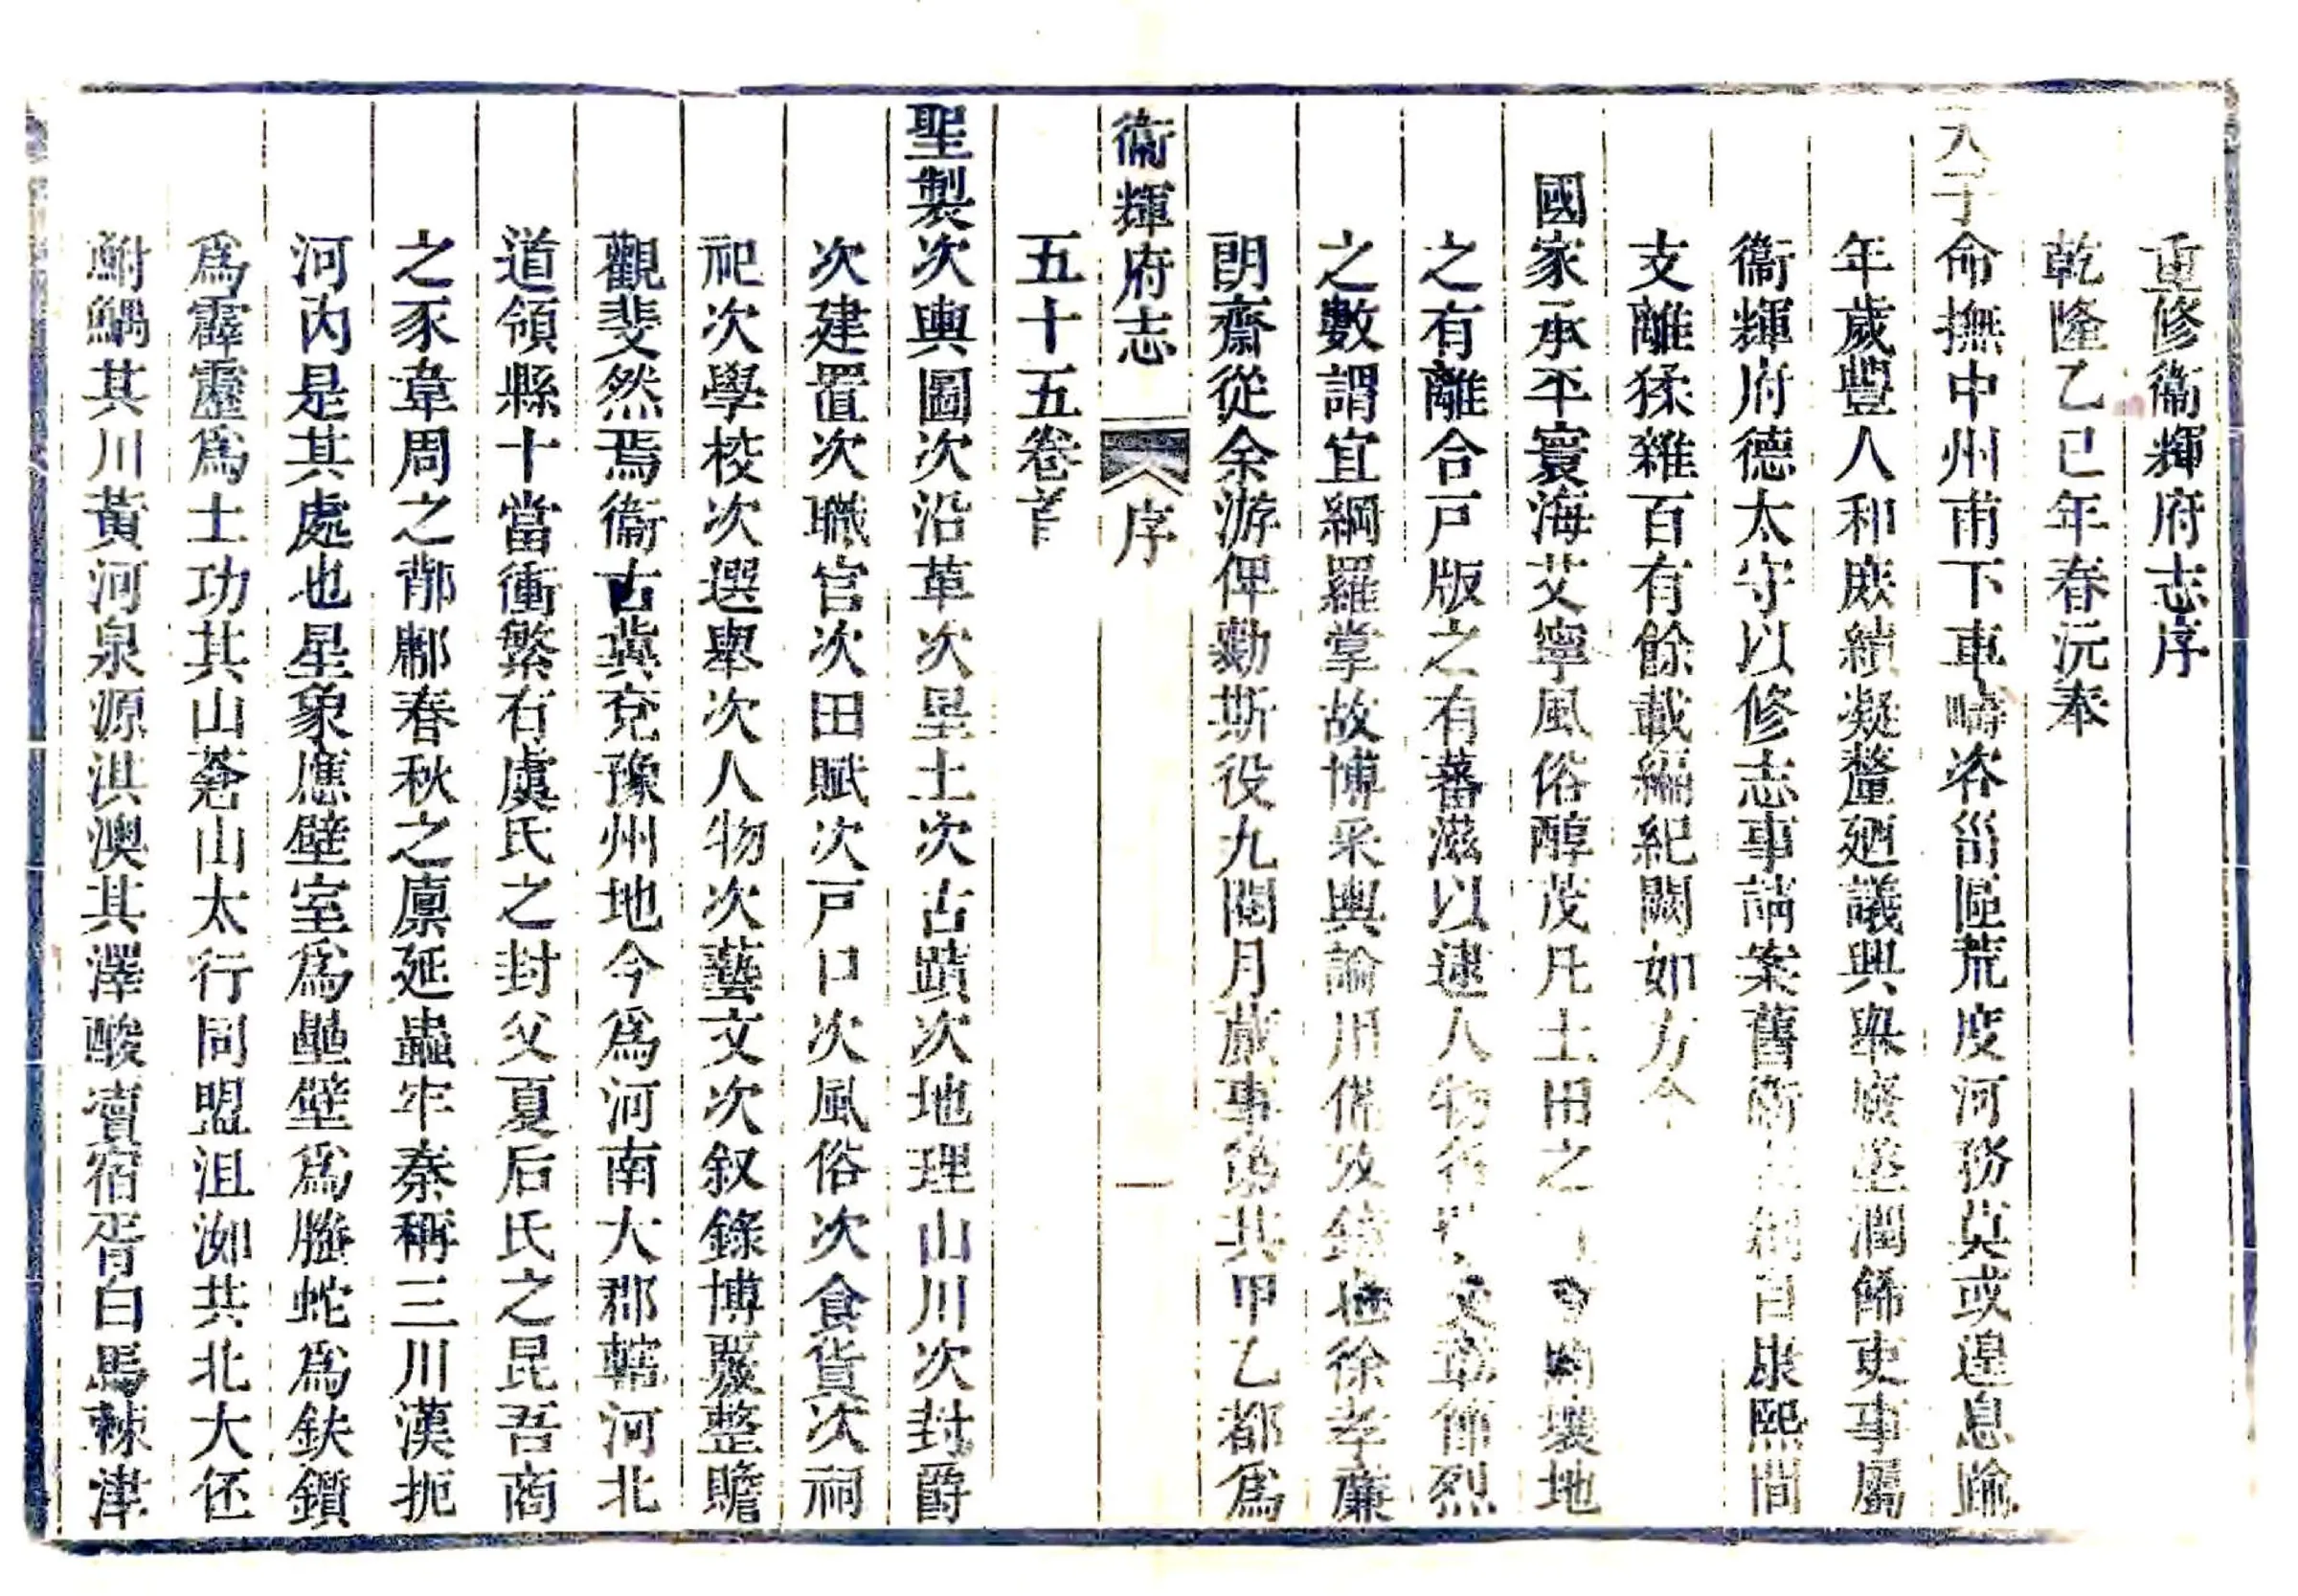 重修衞輝府志序
乾隆乙巳年春沅奉
天子命撫中州甫下車疇咨甾區荒度河務莫或遑息踰
年歲豐人和庶績凝釐廼議興舉廢墜潤餙吏事屬
衞輝府德太守以修志事請案舊衞志剏自康熙間
支離猱雜百有餘載編紀闕如方今
國家承平寰海艾寧風俗醇茂凡土田之有壤地
之有離合戸版之有蕃滋以逮人物文章節烈
之數謂宜綱羅掌故博采輿論用備攷鏡也徐孝廉
朗齋從余游俾勷斯役九閱月蕆事第其甲乙都爲
衞輝府志 序 一
五十五卷首
聖製次輿圖次沿革次星土次古蹟次地理山川次封爵
次建置次職官次田賦次戸口次風俗次食貨次祠
祀次學校次選舉次人物次藝文次叙錄博覈整贍
觀斐然焉衞古冀兗豫州地今爲河南大郡轄河北
道領縣十當衝繁有虞氏之封父夏后氏之昆吾商
之豕韋周之邶鄘春秋之廩延蟲牢秦稱三川漢扼
河内是其處也星象應壁室爲壘壁爲螣蛇爲鈇鑕
爲霹靂爲土功其山蒼山太行同盟沮洳共北大伾
鮒鰅其川黃河泉源淇澳其澤酸瀆宿胥白馬棘津